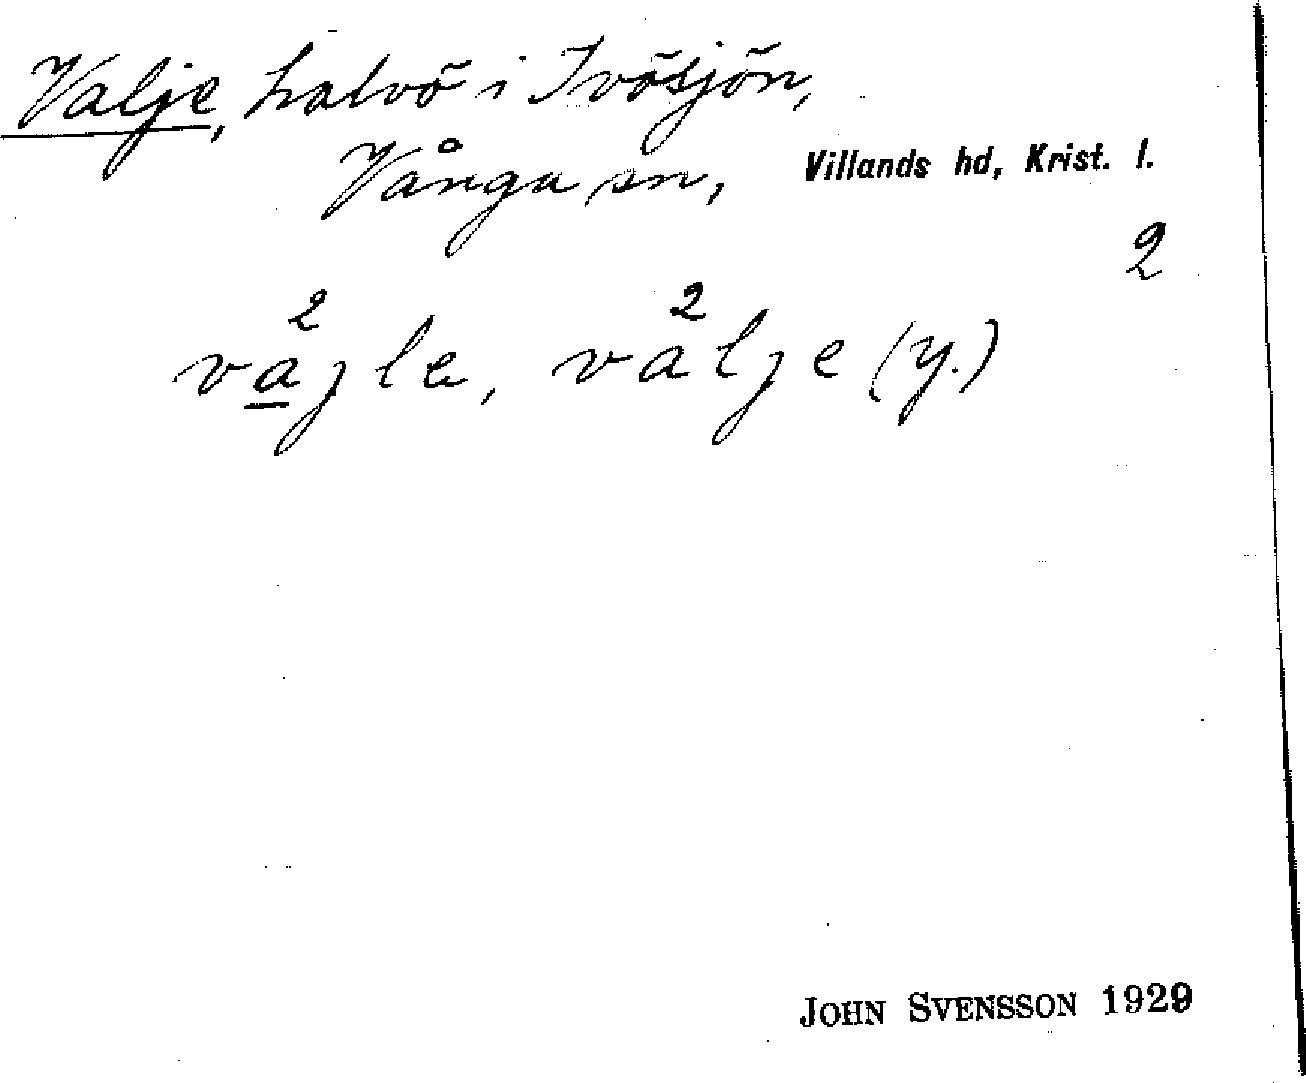 Valje, halvö i Ivösjön,
Vånga sn, Villands hd, Krist. l.
2
va̲²jle, va²lje (y.)
JOHN SVENSSON 1929